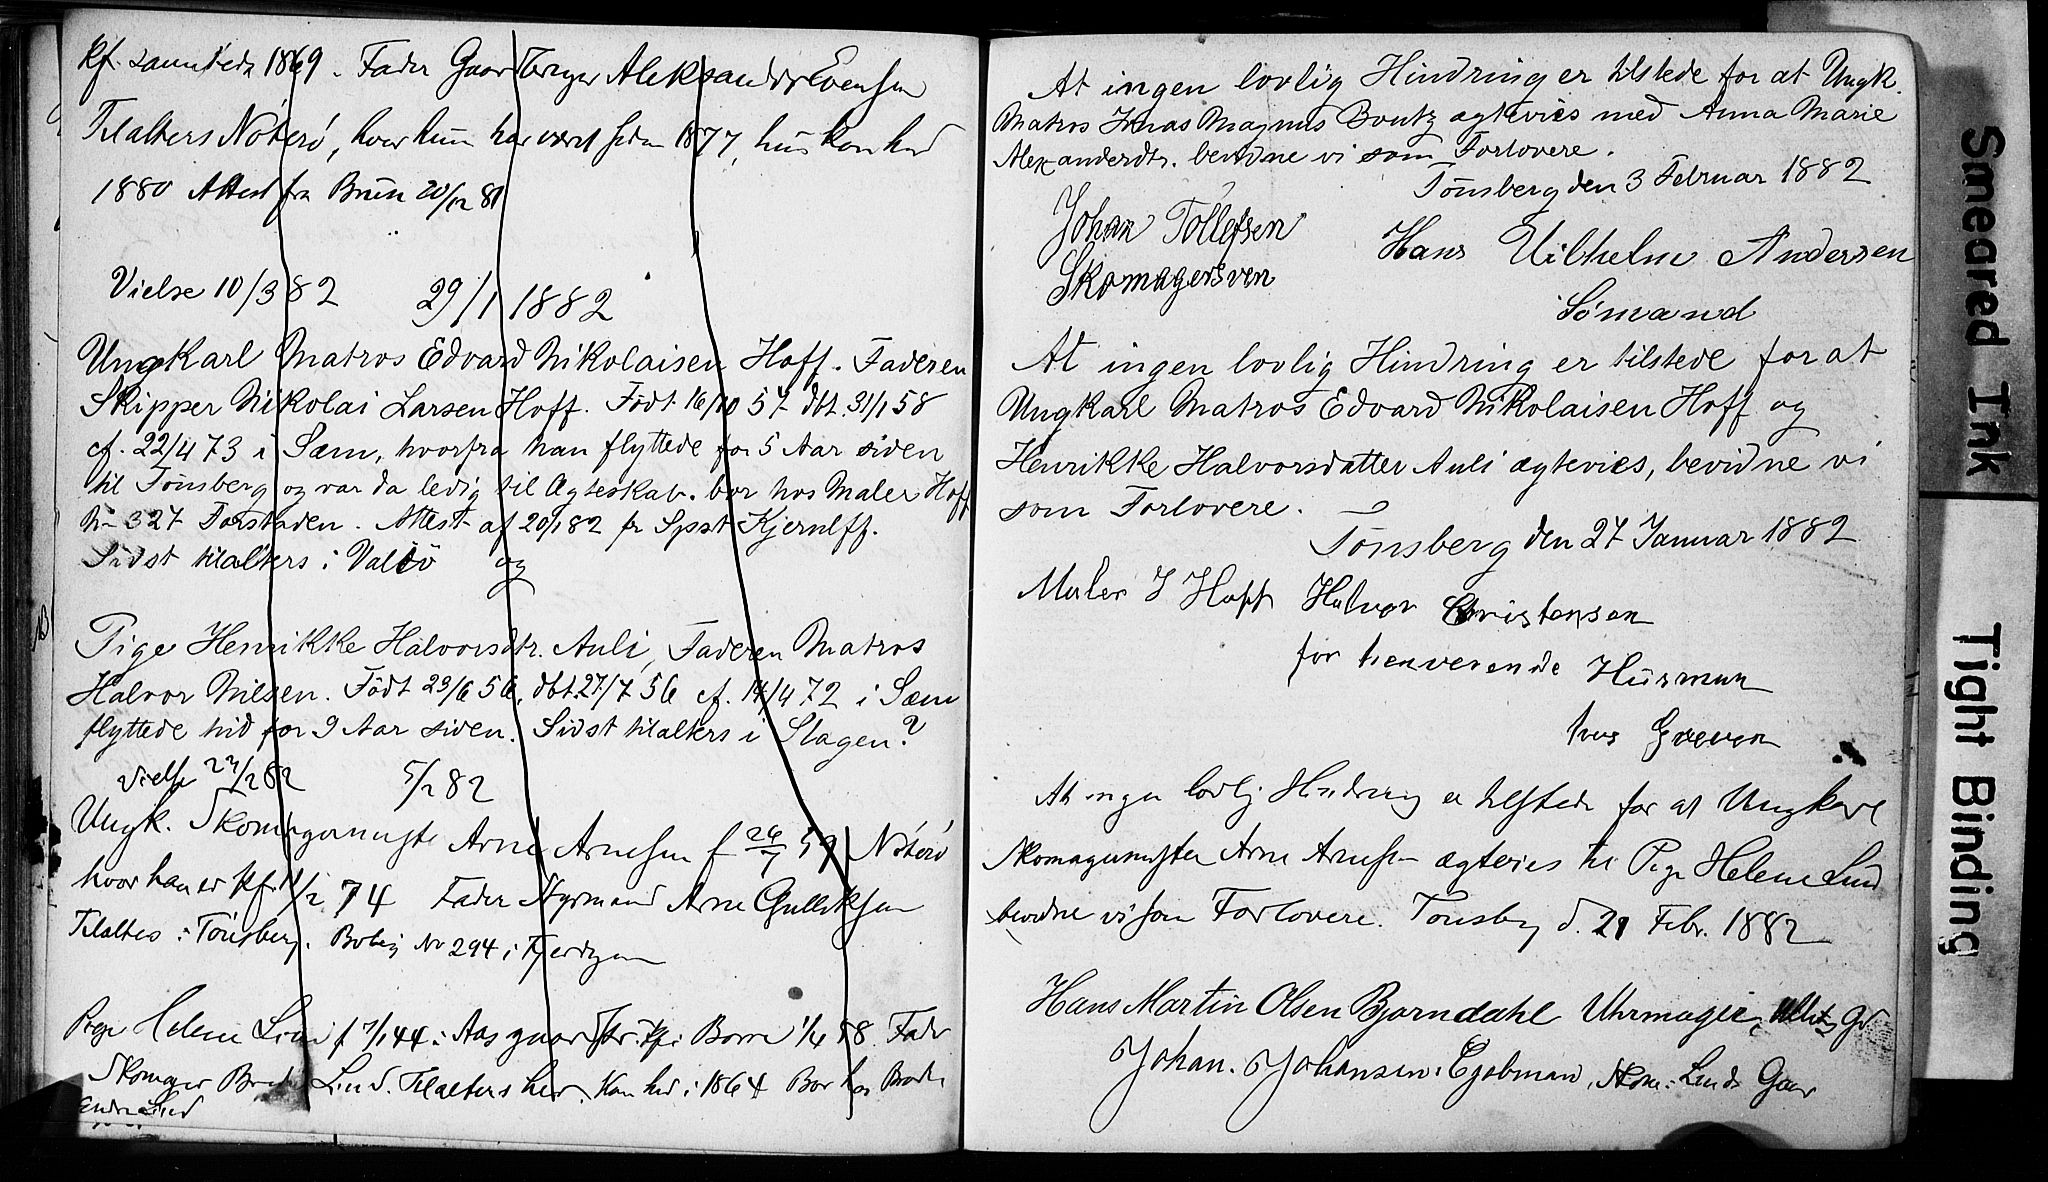 Kf. sammested 1869. Fader Gaardbruger Aleksander Evensen
Tilalters Nøterø, hvor hun har været siden 1877, hun kom hid
1880 Attest fra Bruun 20/12 81
Vielse 10/3 82 29/1 1882
Ungkarl Matros Edvard Nikolaisen Hoff. Faderen
Skipper Nikolai Larsen Hoff. Født 16/10 57 dbt. 31/1 58
cf. 22/4 73 i Sæm, hvorfra han flyttede for 5 Aar siden
til Tønsberg og var da ledig til Ægteskab. bor hos Maler Hoff
No 327 Forstaden. Attest af 20/1 82 fr Spst Kjerulff.
Sidst tilalters i Valø og
Pige Henrikke Halvorsdtr. Auli, Faderen Matros
Halvor Nilsen. Født 23/6 56, dbt. 27/7 56 cf. 14/4 72 i Sæm
flyttede hid for 9 Aar siden. Sidst tilalters i Slagen?
Vielse 24/2 82 5/2 82
Ungk. Skomagermester Arne Arnesen f 26/7 59 Nøterø
hvor han er kf. 74 Fader Styrmand Arne Gulliksen
Tilalters i Tønsberg. Bolig No 294 i Fjerdingen
Pige Helene Lind f 7/1 44 i Aasgaardstr. kf i Borre 1/4 58. Fader
Skomager Lind. Tilalters her. Kom hid i 1864 Bor hos Broder
Lind
At ingen lovlig Hindring er tilstede for at Ungk.
Matros Jonas Magnus Bontz ægtevies med Anna Marie
Alexanderdtr. bevidne vi som Forlovere.
Tønsberg den 3 Februar 1882
Johan Tollefsen Hans Vilhelm Andersen
Skomagersven Sømand
At ingen lovlig Hindring er tilstede for at
Ungkarl Matros Edvard Nikolaisen Hoff og
Henrikke Halvorsdatter Auli ægtevies, bevidne vi
som Forlovere.
Tønsberg den 27 Januar 1882
Maler J Hoff Halvor Christensen
for henverende Husman
hos Greven
At ingen lovlig Hindring er tilstede for at Ungkarl
Skomagermester Arne Arnesen ægtevies til Pige Helene Lind
bevidne vi som Forlovere. Tønsberg d. 21 Febr. 1882
Hans Martin Olsen Bjørndahl Uhrmager,
Johan. Johansen. Skom: Linds Gaar
Smeared Ink
Tight Binding